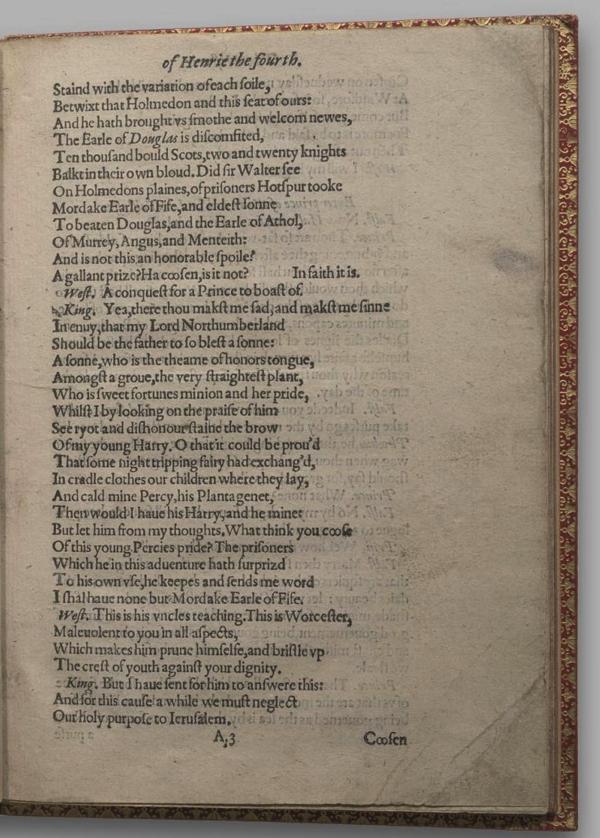 of Henrie the fourth.
Staind with the variation of each soile,
Betwixt that Holmedon and this seat of ours:
And he hath brought vs smothe and welcom newes,
The Earle of Douglas is discomfited,
Ten thousand bould Scots, two and twenty knights
Balkt in their own bloud. Did sir Walter see
On Holmedons plaines, of prisoners Hotspur tooke
Mordake Earle of Fife, and eldest sonne
To beaten Douglas, and the Earle of Athol,
Of Murrey, Angus, and Menteith:
And is not this an honorable spoile?
A gallant prize? Ha coosen, is it not? In faith it is.
West. A conquest for a Prince to boast of.
King. Yea, there thou makst me sad, and makst me sinne
In enuy, that my Lord Northumberland
Should be the father to so blest a sonne:
A sonne, who is the theame of honors tongue,
Amongst a groue, the very straightest plant,
Who is sweet fortunes minion and her pride,
Whilst I by looking on the praise of him
See ryot and dishonour staine the brow
Of my young Harry. O that it could be prou'd
That some night tripping fairy had exchang'd,
In cradle clothes our children where they lay,
And cald mine Percy, his Plantagenet,
Then would I haue his Harry, and he mine:
But let him from my thoughts. What think you coose
Of this young Percies pride? The prisoners
Which he in this aduenture hath surprizd
To his own vse, he keepes and sends me word
I shal haue none but Mordake Earle of Fife.
West. This is his vncles teaching. This is Worcester,
Maleuolent to you in all aspects,
Which makes him prune himselfe, and bristle vp
The crest of youth against your dignity.
King. But I haue sent for him to answere this:
And for this cause a while we must neglect
Our holy purpose to Ierusalem.
A.3 Coosen